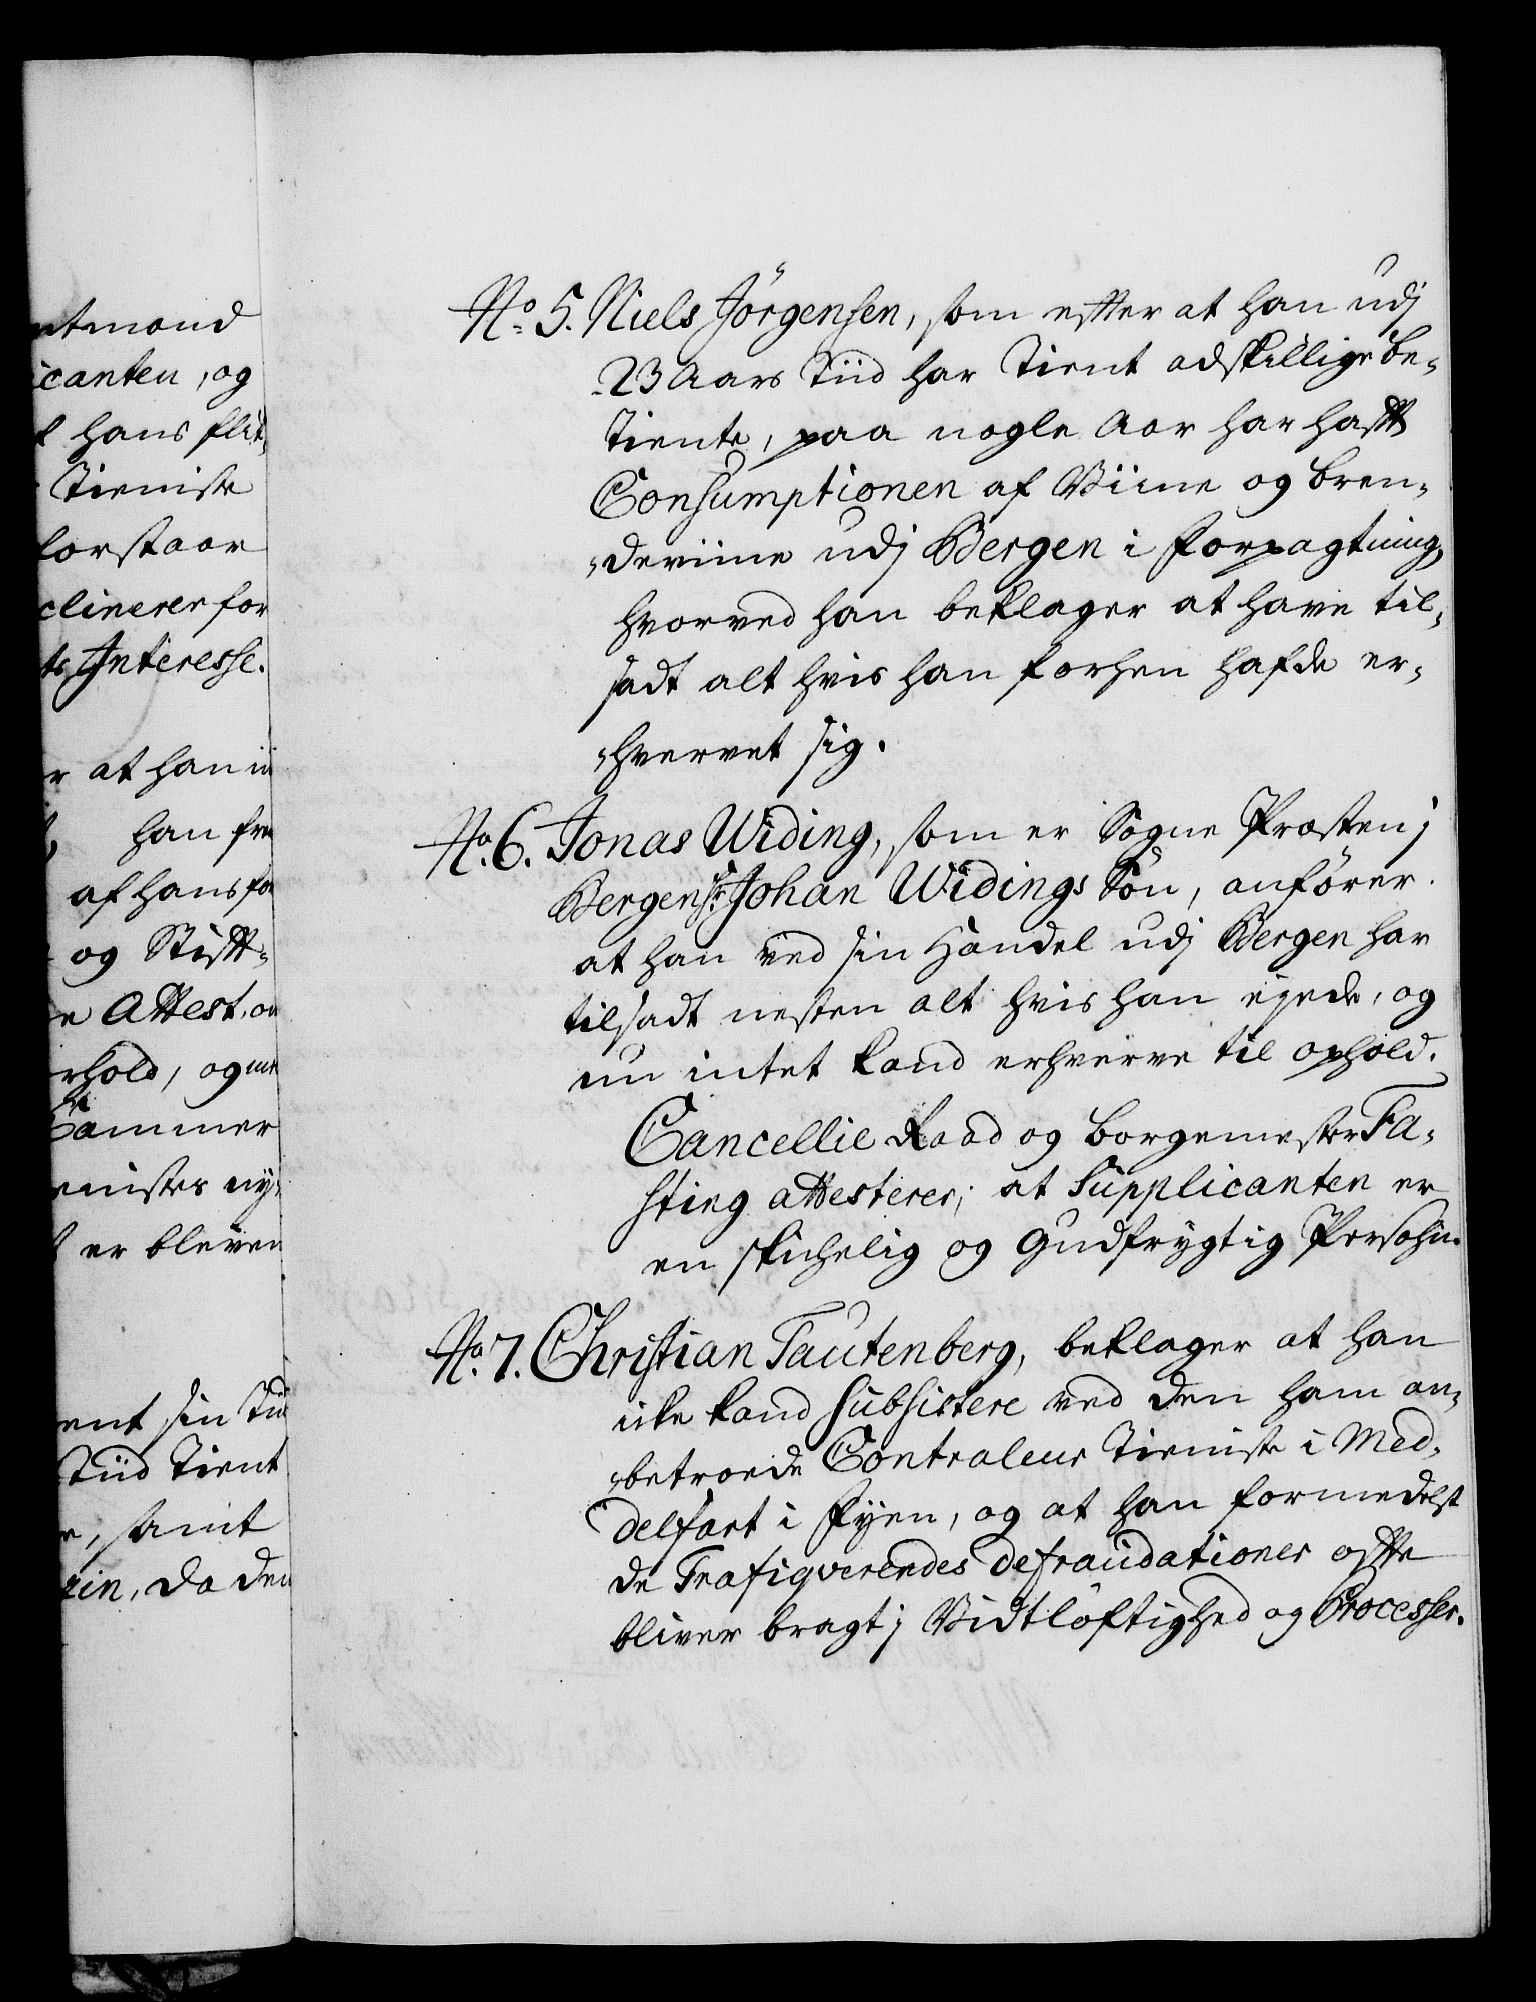 ntmand
icanten, og
hans flit,
Tieniste
forstaar
clinerer for
ts Interesse.
r at han
han fra
af hans
og Stift-
e Attest,
rhold, og
Cammer
enistes ny,
er bleven
ent sin Tiid
Tiid Tient
e, samt
rin, da den
No 5. Niels Jörgensen, som efter at han udj
23 Aars Tiid har Tient adskillige be-
Tiente, paa nogle Aar har hafft
Consumptionen af Viine og bren-
deviine udj Bergen i forpagtning,
hvorved han beklager at have til-
sadt alt hvis han forhen hafde er-
hvervet sig.
No. 6. Jonas Widing, som er Sogne Præsten j
Bergen Hr. Johan Widings Sön, anförer
at han ved sin Handel udj Bergen har
tilsadt nesten alt hvis han ejede, og
nu intet kand erhverve til ophold.
Cancellie Raad og borgemester Fa-
sting attesterer, at Supplicanten er
en skichelig og gudfrygtig Persohn.
No. 7. Christian Tautenberg, beklager at han
icke kand subsistere ved den ham an-
betroede Controleur Tieniste i Med-
delfart i Fyen, og at han formedelst
de Trafiqverendes defraudationer offte
bliver bragt j Vidtlöftighed og Processer.